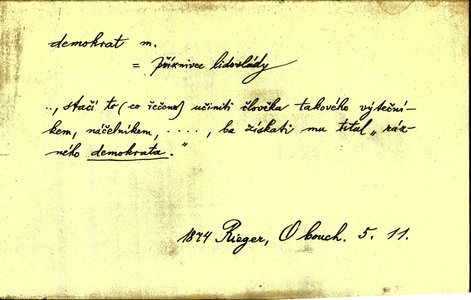 demokrat m.
= příznivec lidovlády
„, stačí to (co řečeno) učiniti člověka takového výteční-
kem, náčelníkem, ...., ba získati mu titul „ráz-
ného demokrata."
1874 Rieger, O bouch. 5. 11.